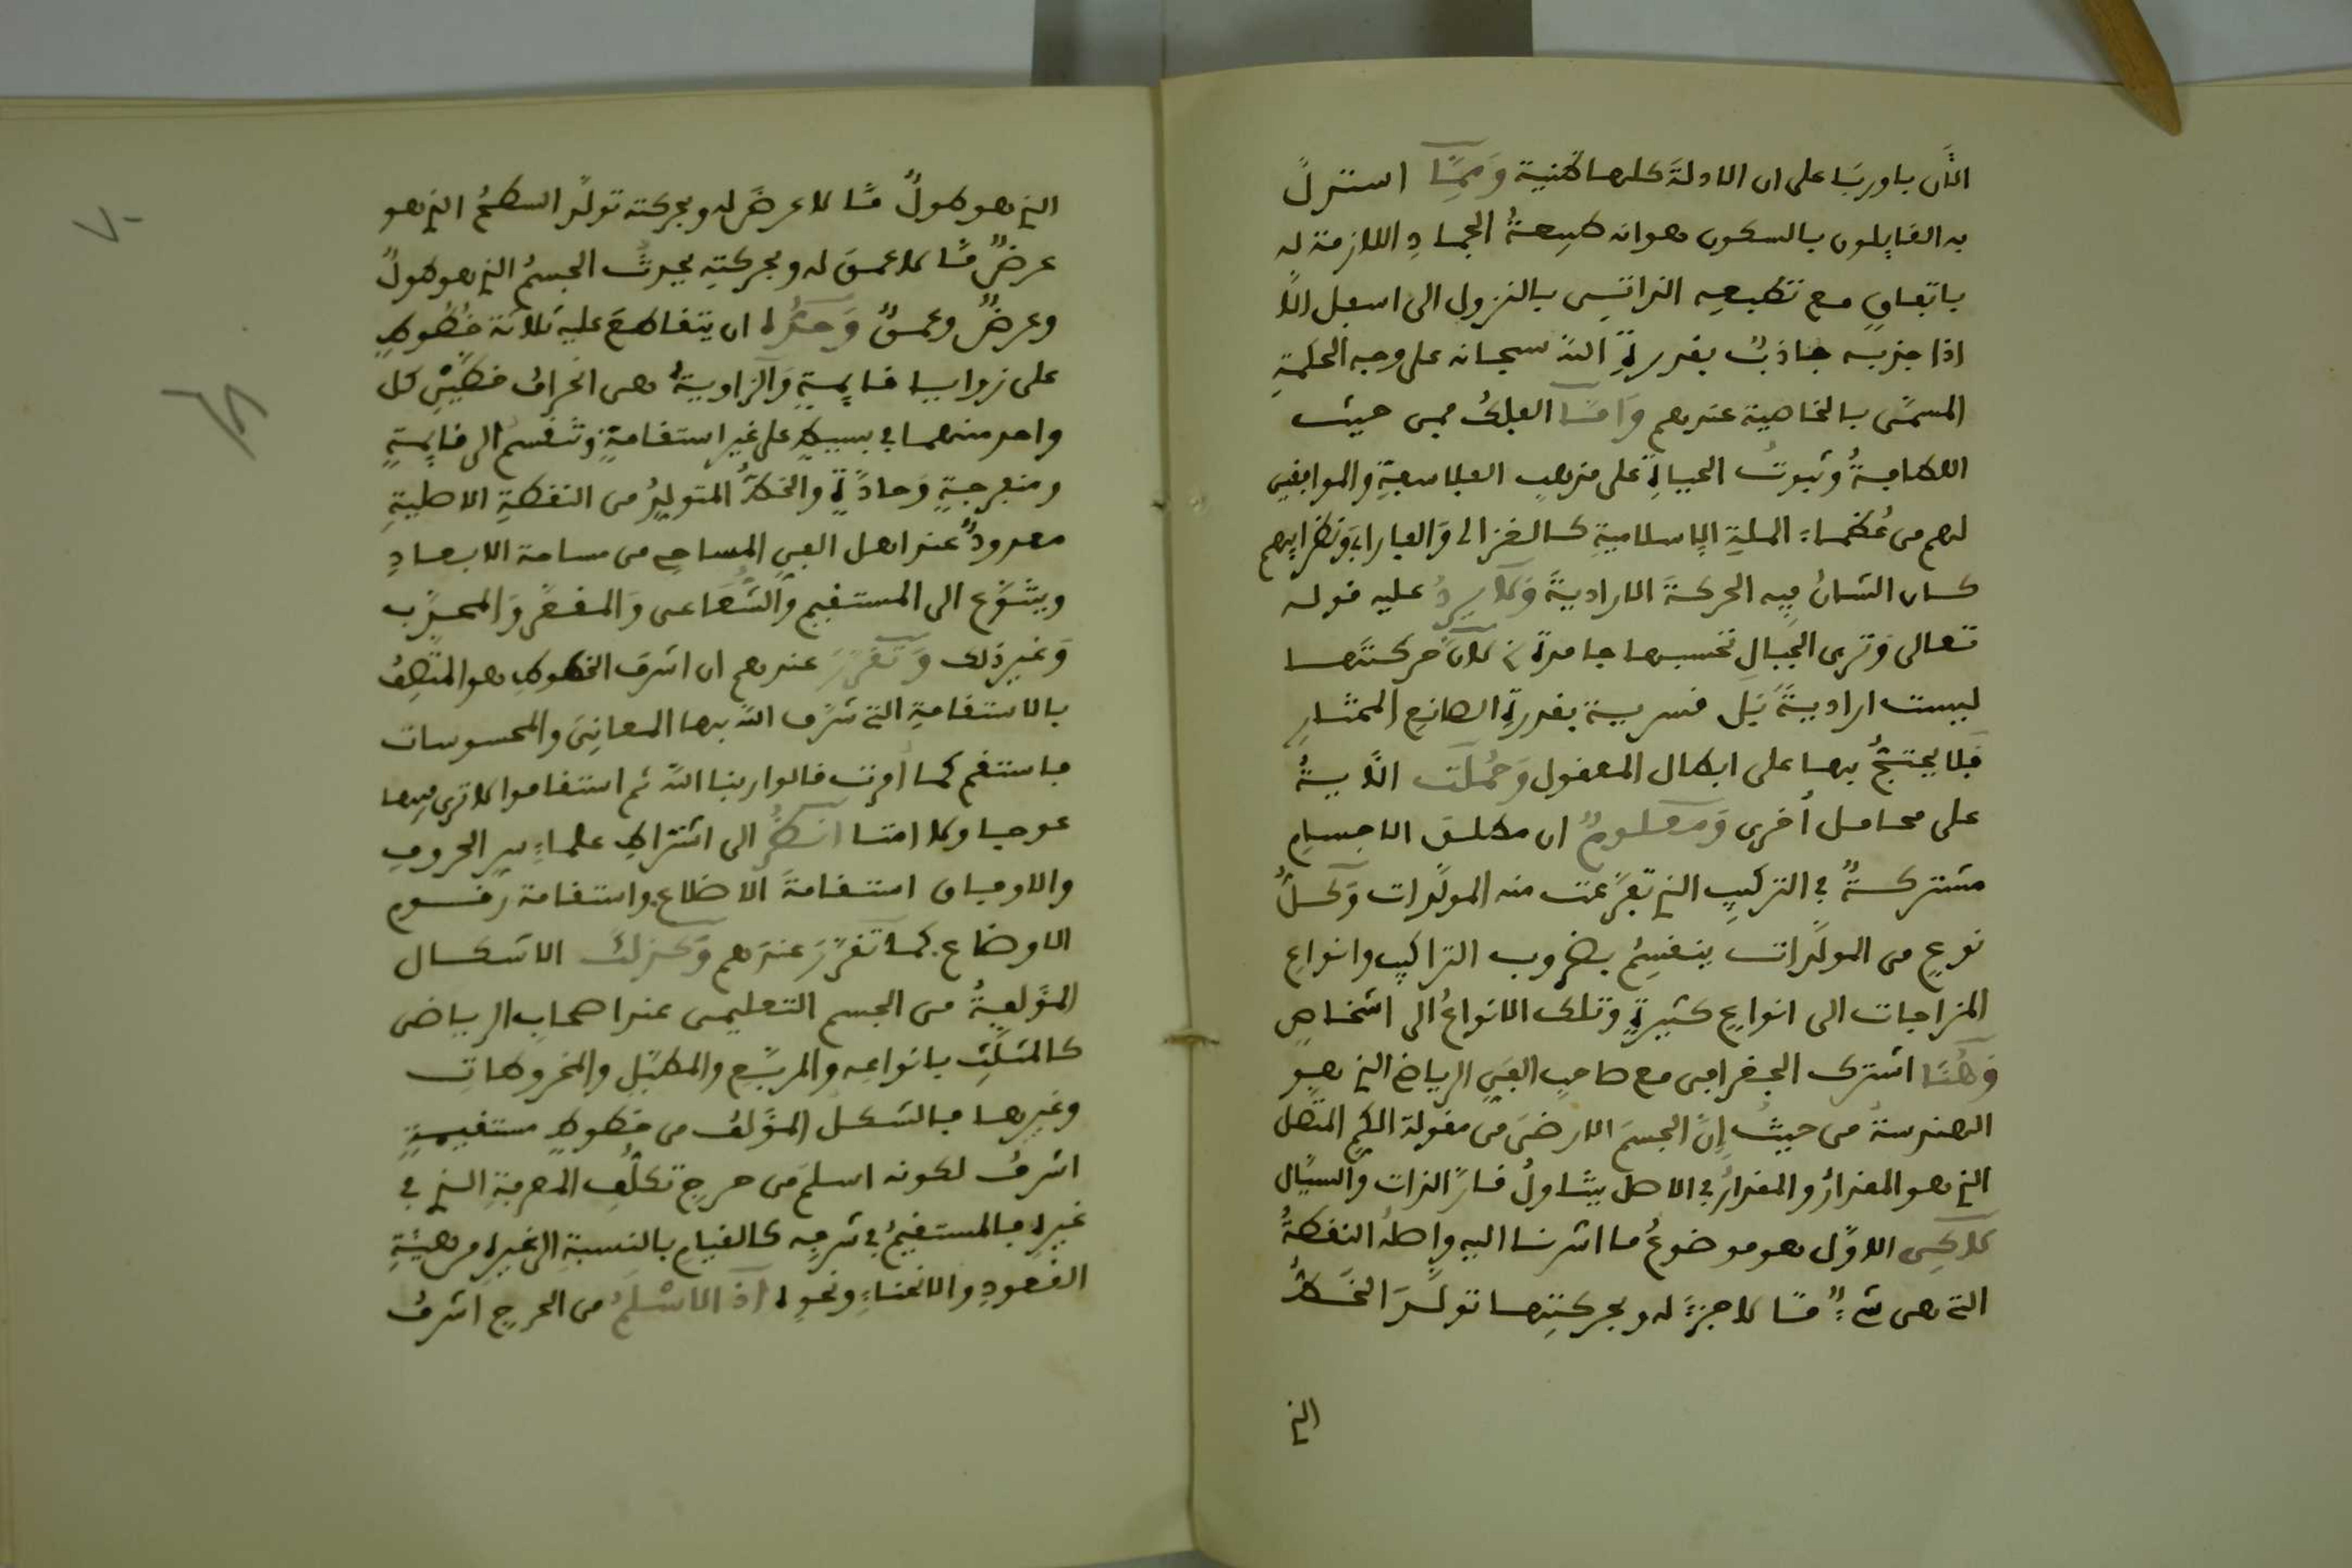 الآن باوربا على ان الادلة كلها ظنية وَممَّا استدلَّ
به القايلون بالسكون هو انه طبيعةُ الجمادِ اللازمة له
باتفاقٍ مع تطبعه الذاتِى بالنزول الى اسفل الا
اذا جذبه جاذبٌ بقدرةِ الله سبحانه على وجه الحكمةِ
المسمَّى بالخاصية عندهم وَامَّا الفلكُ فمن حيث
اللطافةُ وثبوتُ الحياةِ على مذهبِ الفلاسفةِ والموافقين
لهم من عُظماءِ الملةِ الاسلاميةِ كالغزالى وَالفارابى ونظرايهم
كان الشانُ فيه الحركةَ الاراديةَ وَلا يردُ عليه قوله
تعالى وَترى الجبال تحسبها جامدةً لانَّ حركتَها
ليست اراديةً بَل قسرية بقدرةِ الصانعِ المختارِ
فلا يحتجُّ بها على ابطال المعقول وَحُملَت الآيةُ
على محامل أخرى وَمعلومٌ ان مطلق الاجسامِ
مشتركةٌ في التركيبِ الذي تفرَّعت منه المولَّدات وَكلُّ
نوعٍ من المولَّدات ينقسِمُ بضروب التراكيبِ وانواعِ
المزاجات الى انواعٍ كثيرةٍ وتلك الانواعُ الى اشخاصٍ
وَهُنَا اشترك الجغرافى مع صاحبِ الفنِ الرياضي الذي هو
الهندسةُ من حيثُ إنَّ الجسمَ الارضىَ من مقولة الكمِ المتَّصل
الذي هو المقدارُ والمقدارُ في الاصل يتناولُ قارَّ الذات والسيَّال
لاكِن الاوَّل هو موضوعُ ما اشرنا اليه واصلُه النقطةُ
التي هي شيءٌ مَّا لا جزءَ له وبحركتِها تولَّدَ الخَطُّ
الذي
الذي هو طولٌ مَّا لا عرضَ له وبحركته تولَّد السطحُ الذي هو
عرضٌ مَّا لا عمقَ له وبحركتِه يحدثُ الجسمُ الذي هو طولٌ
وعرضٌ وعمقٌ وَحدُّه ان يتقاطعَ عليه ثلاثة خُطُوطٍ
على زوايا قايمةٍ وَالزاويةُ هى انحرافُ خطَّيْنِ كل
واحد منهما في بسيطٍ على غير استقامةٍ وتَنْقسمُ الى قايمةٍ
ومنفرجةٍ وَحادَّةٍ والخطُّ المتولِدُ من النقطةِ الاصليةِ
معدودٌ عند اهل الفنِ المساحى من مساحة الابعادِ
ويتنَوَّع الى المستقيم وَالشُّعَاعى وَالمقعَّر وَالمحدَّب
وَغير ذلك وَتَقرَّرَ عندهم ان اشرف الخطوطِ هو المتَّصِفُ
بالاستقامةِ التي شرَّف الله بها المعانِىَ والمحسوسات
فاستقم كما أُمرت قالوا ربنا الله ثم استقاموا لا ترى فيها
عوجا ولا امتا انظُرْ الى اشتراطِ علماءِ سرِ الحروفِ
والاوفاق استقامةَ الاضلاع واستقامة رقوم
الاوضاع كما تقرَّرَ عندَهم وَكذلكَ الاشكال
المؤَلفةُ من الجسم التعليمى عند اصحابِ الرياضى
كالمثلَّثِ بانواعِه والمربَّعِ والمطبَّلِ والمخروطاتِ
وغيرها فالشكل المؤَلفُ من خطوطٍ مستقيمةٍ
اشرفُ لكونه اسلمَ من حرجِ تكلُّفِ المعرفةِ الذي في
غيرِه فالمستقيمُ في شرفه كالقيامِ بالنسبةِ الى غيرِه من هيئةِ
القعودِ والانحناءِ ونحوه اذ الاسْلَمُ من الحرجِ اشرفُ